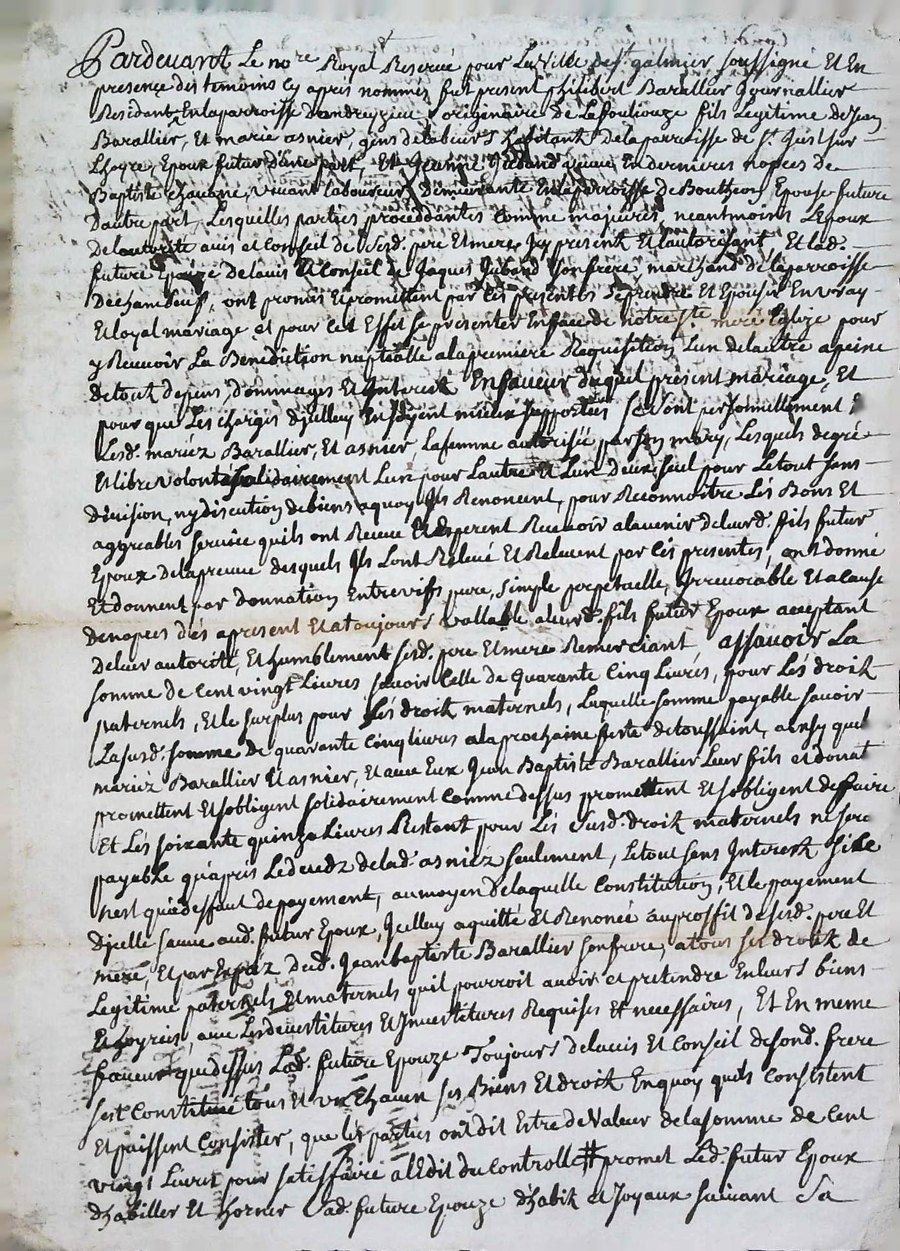 Pardevant Le no.re Royal Reservé pour La Ville de S.t galmier soussigné Et En
presence des temoins Cy aprés nommés fut present philibert Barallier Journallier
Residant Enlaparroisse Dandreyzieu originaire de Lafouliouze fils Legitime de Jean
Barallier, Et marie asnier, gens detrbieurs habitant delaparroisse de S.t Just sur
Lhoyre, Epoux futur d'une part, Et Jeanne Juband veuve En dernieres nopces de
Baptiste chauane, vivant laboureur demeurante Enlaparroisse de Boutheon, Epouse future
dautre part, Lesquelles parties procedantes Comme majeures, neantmoins L'Epoux
de Lautorité avis et Conseil de sesd. pere Et mere Icy present Et lautorisant, Et lad.
future Epouze delavis Et Conseil de Jaques Juband son frere, marchand delaparroisse
dechambeuf, ont promis Et promettent par Ces presentes se prendre Et Epouser En vray
Et loyal mariage et pour Cet Effet se presenter En face de notre S.te mere Eglize pour
y Recevoir La Benediction nuptialle alapremiere Requisition Lun delautre a peine
detout depens, dommages Et Interest En faveur duquel présent mariage, Et
pour que Les charges djcelluy En soyent mieux supportées se sont personnellement
Lesd. mariéz Barallier, Et asnier, lafemme autorisée par son mary, Lesquels degré
Et libre volonté solidairement Lun pour Lautre Et Lun deux seul pour Letout sens
division, ny discution debiens aquoy Ils Renoncent, pour Reconnoitre Les Bons Et
aggreables service quils ont Receue Et Esperent Recevoir alavenir deleurd. fils futur
Epoux delapreuve desquels Ils Lont Relevé Et Relevent par Ces presentes, ont donné
Et donnent par donnation Entrevifs pure, simple perpetuelle, Irrevocable Et acause
denopces dés apresent Et atoujours vallable aleurd. fils futur Epoux acceptant
deleur autorité, Et humblement sesd. pere Et mere Remerciant assavoir La
somme de Cent vingt Livres savoir Celle de quarante Cinq Livres, pour Les droit
paternels, Et le surplus pour Les droit maternels, Laquelle somme payable savoir
Lasusd. somme de quarante Cinq livres alaprochaine feste detoussaint, ainsy que
mariéz Barallier Et asnier, Et avec Eux Jean Baptiste Barallier Leur fils et donat
promettent Et sobligent solidairement Comme dessus promettent Et sobligent deffaire
Et Les soixante quinze Livres Restant pour Les susd. droit maternels ne sera
payable quaprés Ledecedz delad. asniéz seulement, Letout sens Interest si Ce
nest qu'adeffaut depayement, aumoyen delaquelle Constitution, Et le payement
djcelle sauve aud. futur Epoux, Icelluy aquitté Et Renoncé auproffit de sesd. pere Et
mere, Et par Expréz dud. Jean baptiste Barallier son frere, atous ses droit de
Legitime paternels Et maternels quil pourroit avoir et pretendre En leurs biens
Et hoyries, avec Lesdevestitures Et Investitures Requises Et necessaires, Et En meme
faveur que dessus Lad. future Epouze toujours delavis Et Conseil de sond. frere
sest Constitué tous Et un Chacun ses Biens Et droit En quoy quils Consistent
Et puissent Consister, que les parties ont dit Estre de Valeur delasomme de Cent
vingt Livres pour satisfaire alEdit du Controlle # promet Led. futur Epoux
dhabiller Et horner Lad. future Epouze dhabit et Joyaux suivant sa